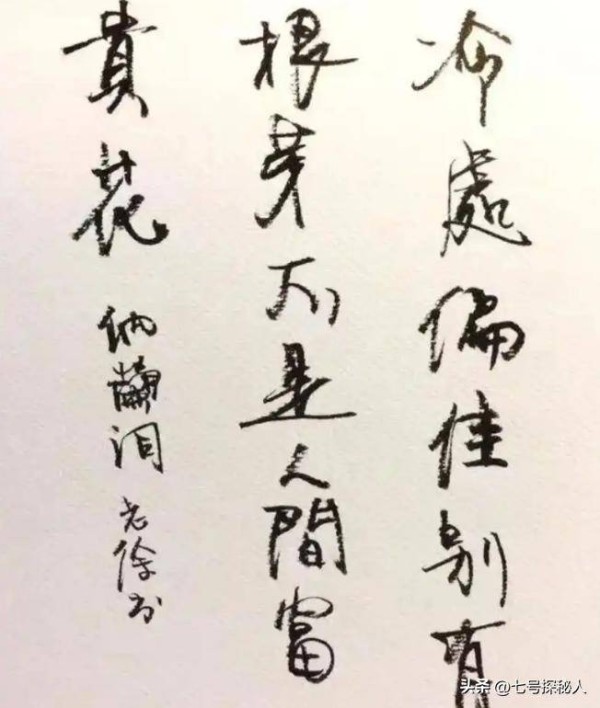 冷處偏佳別有
根芽不是人間富
貴花
納蘭詞
老徐书
头条 @七号探秘人